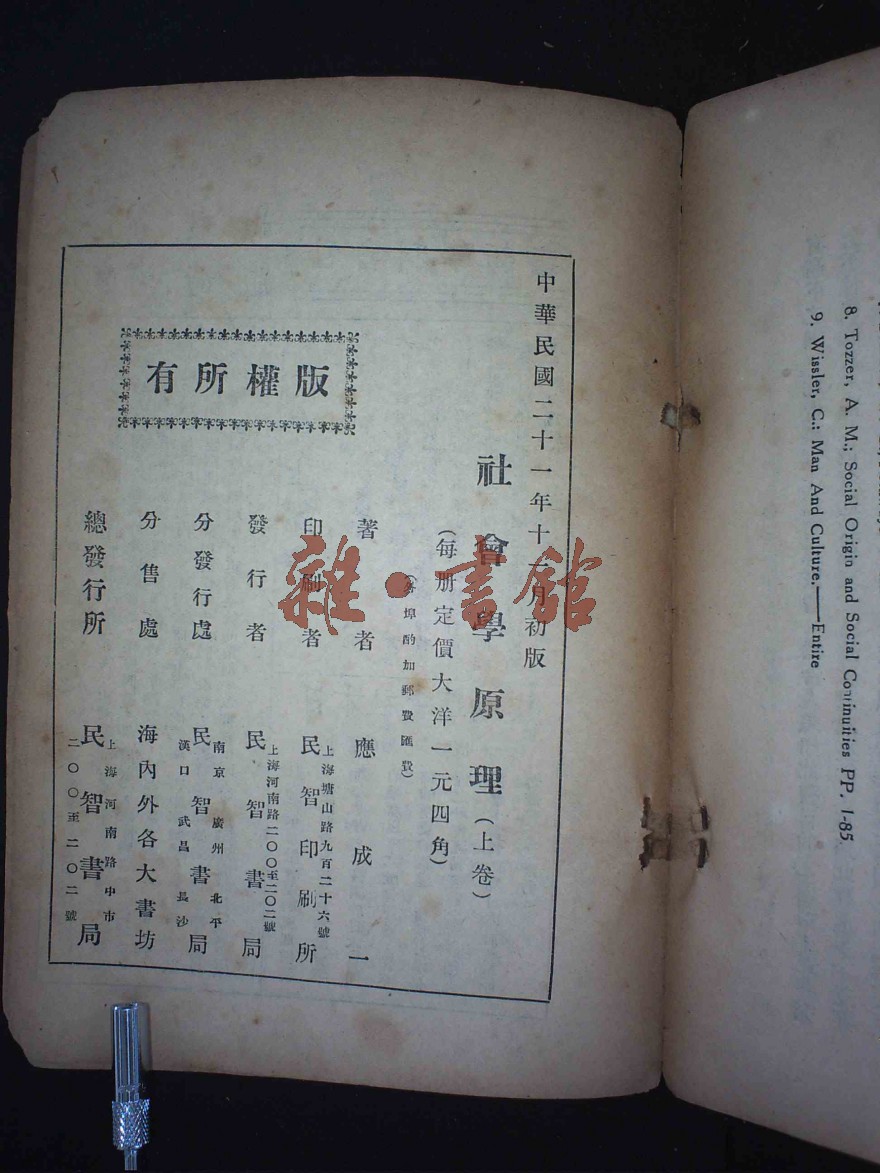 中華民國二十一年十一月初版
社會學原理(上卷)
(每册定價大洋一元四角)
(各埠酌加郵費匯費)
著者 應成一
印刷者 上海塘山路九百二十六號 民智印刷所
發行者 上海河南路二〇〇至二〇二號 民智書局
分發行處 南京 廣州 北平 民智書局 漢口 武昌 長沙
分售處 海內外各大書坊
總發行所 上海河南路中市 民智書局 二〇〇至二〇二號
有所權版
雜·書館
8. Tozzer, A. M.; Social Origin and Social Continuities PP. 1-85
9. Wissler, C.: Man And Culture.——Entire